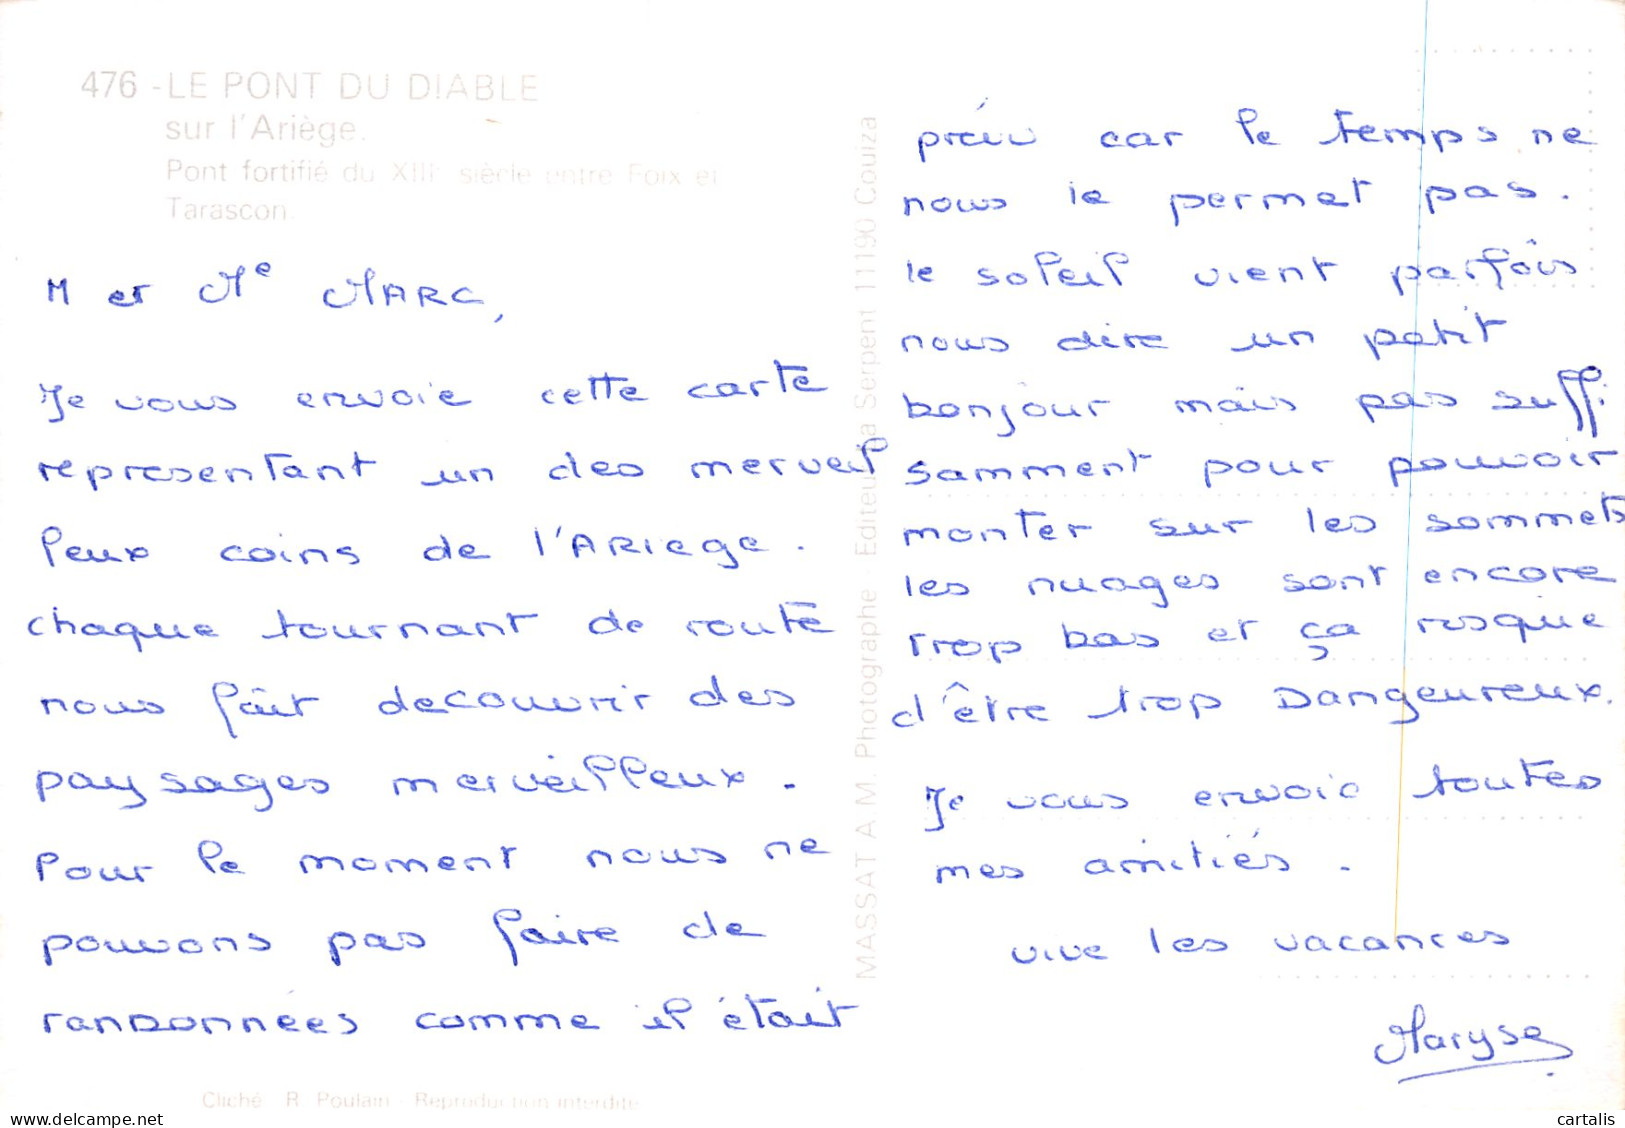 476 - LE PONT DU DIABLE
sur l'Ariège.
Pont fortifié du XIIIe siècle entre Foix et
Tarascon
M et Me MARC,
Je vous envoie cette carte
representant un des merveil
leux coins de l'ARiege.
chaque tournant de route
nous fait decouvrir des
paysages merveilleux.
Pour le moment nous ne
pouvons pas faire de
randonnées comme il était
prévu car le temps ne
nous le permet pas.
le soleil vient parfois
nous dire un petit
bonjour mais pas suffi
samment pour pouvoir
monter sur les sommets
les nuages sont encore
trop bas et ça risque
d'être trop Dangeureux.
Je vous envoie toutes
mes amitiés.
vive les vacances
Maryse
MASSAT A.M. Photographe - Editeur La Serpent 11190 Couiza
Cliché R. Poulain - Reproduction interdite
cartalis